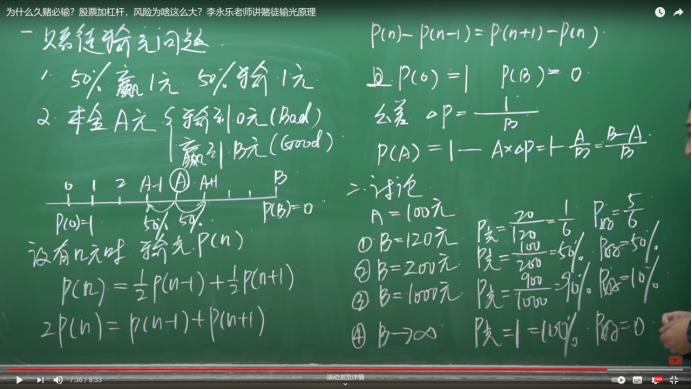 为什么久赌必输？股票加杠杆，风险为啥这么大？李永乐老师讲赌徒输光原理
一 赌徒输光问题
1. 50% 赢1元 50% 输1元
2. 本金A元 { 输到0元(Bad)
赢到B元(Good)
0 1 2 A-1 A A+1 B
P(0)=1 50% 50% P(B)=0
设有n元时 输光P(n)
P(n)=½P(n-1)+½P(n+1)
2P(n)=P(n-1)+P(n+1)
P(n)-P(n-1)=P(n+1)-P(n)
且 P(0)=1 P(B)=0
公差 △P=1/B
P(A)=1-A×△P=1-A/B=B-A/B
二.讨论
A=100元
① B=120元 P光=20/120=1/6 P=5/6
② B=200元 P光=100/200=50% P=50%
③ B=1000元 P光=900/1000=90% P=10%
④ B→∞ P光=1=100% P=0
7:36 / 8:33